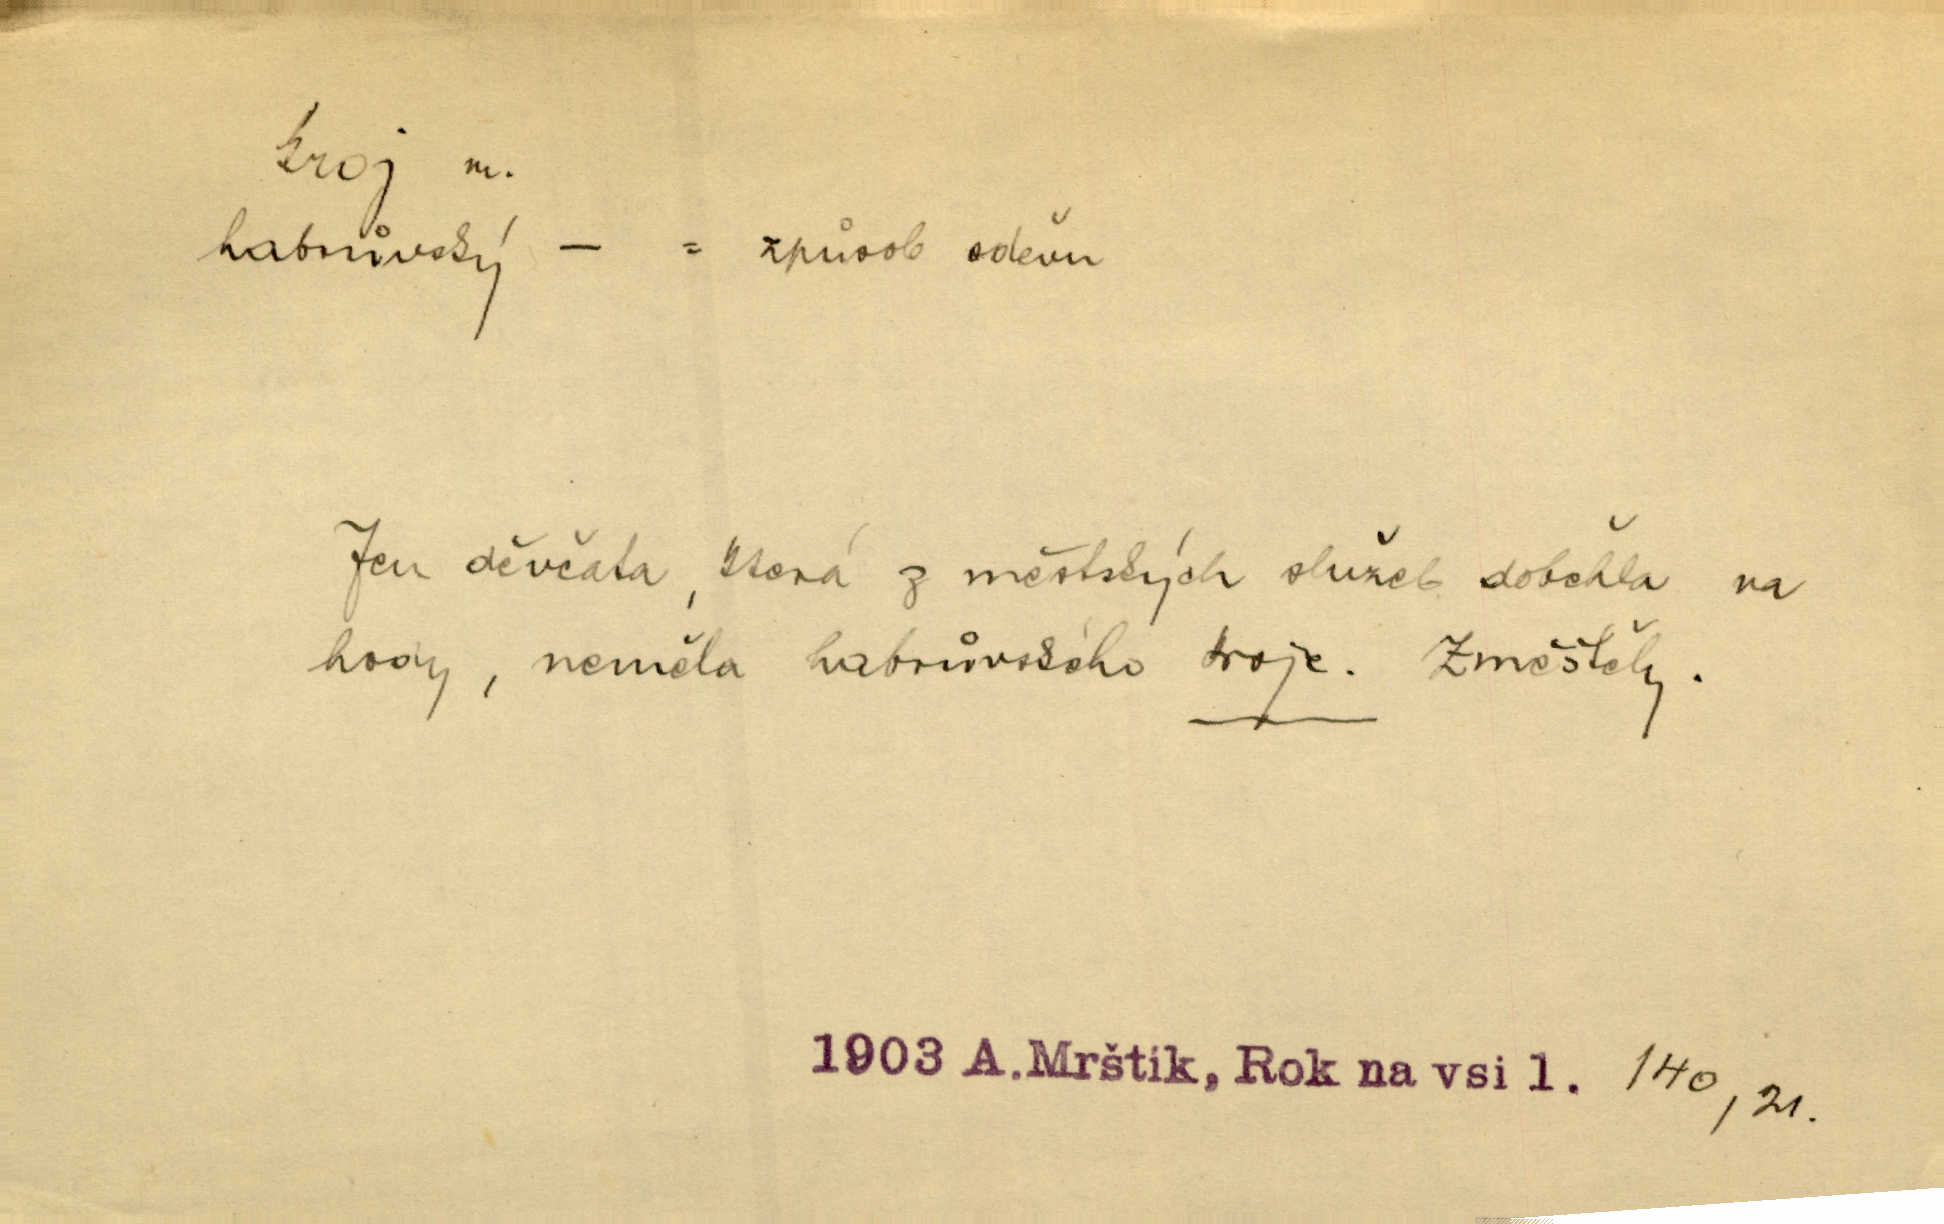 kroj m.
habrůvský — = způsob oděvu
Jen děvčata, která z městských služeb doběhla na
hody, neměla habrůvského kroje. Změštěly.
1903 A.Mrštík, Rok na vsi 1. 140, 21.